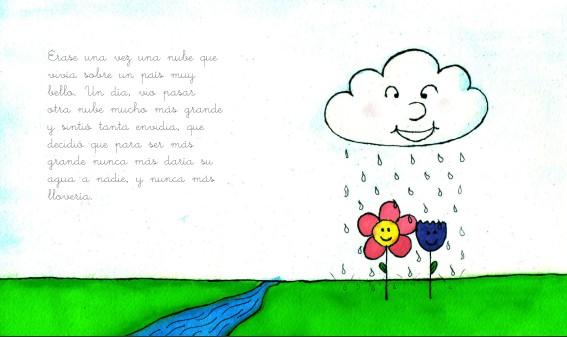 Erase una vez una nube que
vivía sobre un país muy
bello. Un día, vio pasar
otra nube mucho más grande
y sintió tanta envidia, que
decidió que para ser más
grande nunca más daría su
agua a nadie, y nunca más
llovería.